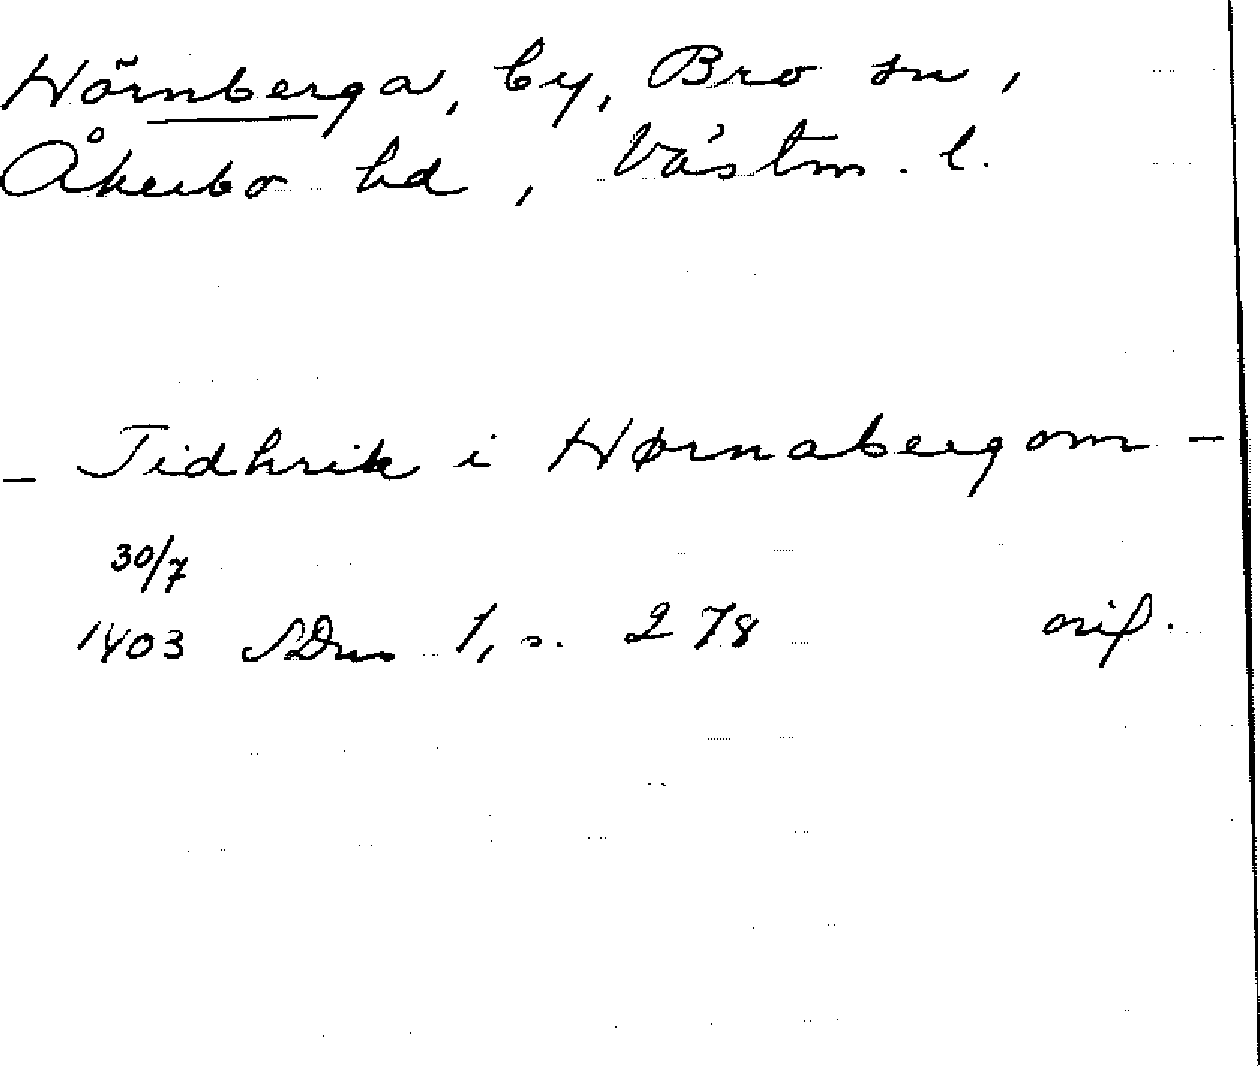 Hörnberga, by, Bro sn,
Åkerbo hd, Västm. l.
- Tidhrik i Hørnabergom -
30/7
1403 SDns 1, s. 278 orig.